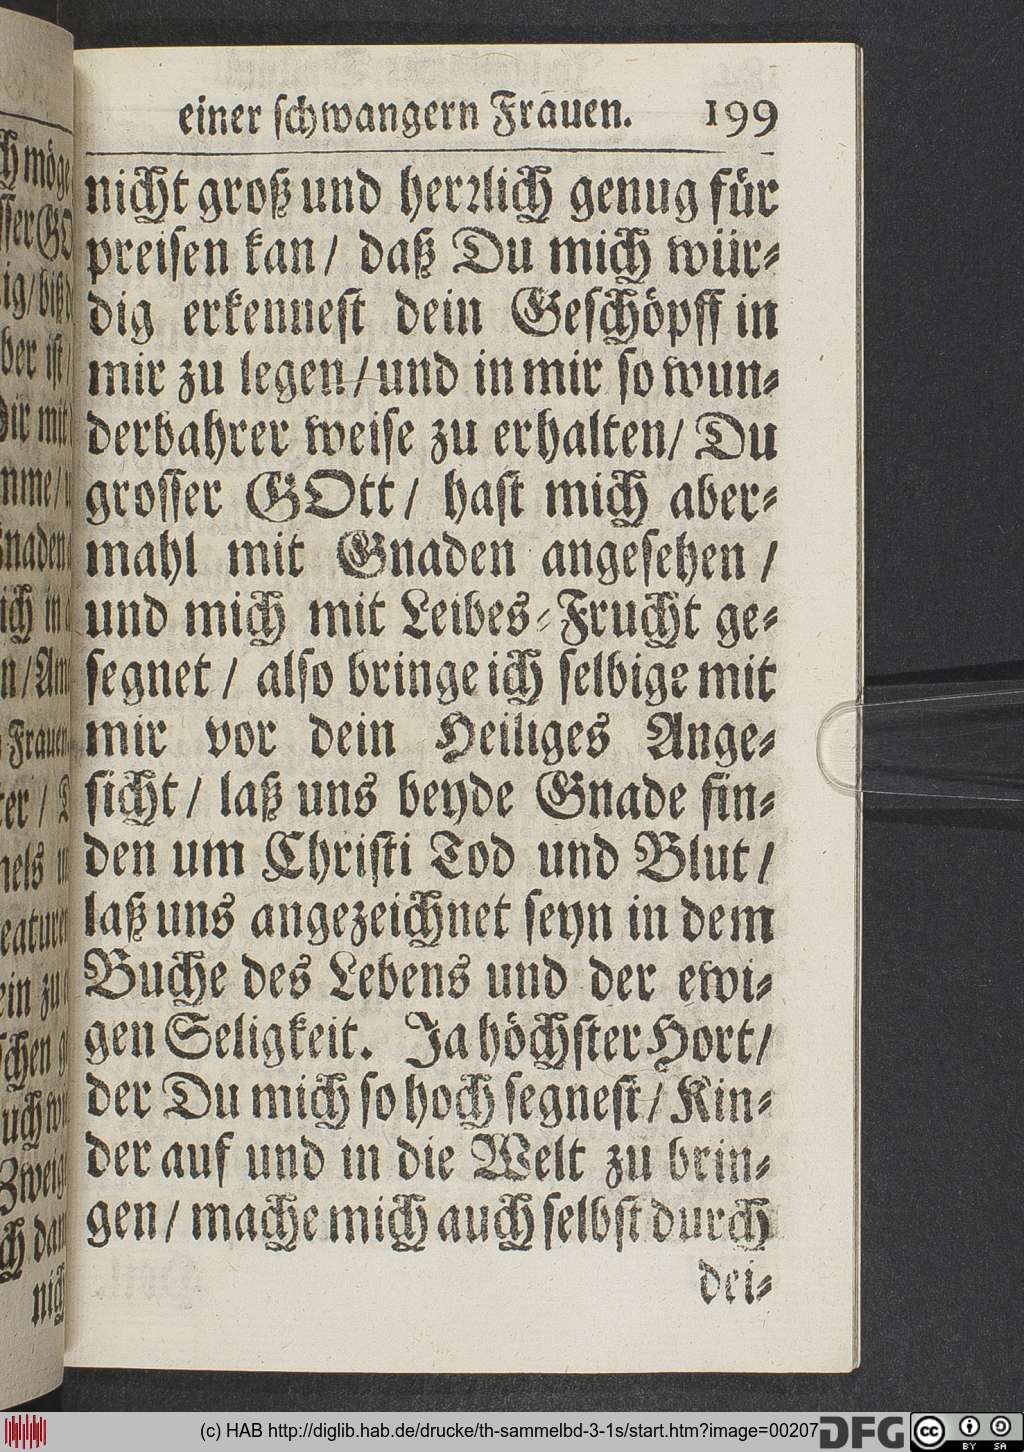 einer schwangern Frauen. 199
nicht groß und herꝛlich genug für
preisen kan / daß Du mich wür-
dig erkennest dein Geschöpff in
mir zu legen / und in mir so wun-
derbahrer weise zu erhalten / Du
grosser GOtt / hast mich aber-
mahl mit Gnaden angesehen /
und mich mit Leibes-Frucht ge-
segnet / also bringe ich selbige mit
mir vor dein Heiliges Ange-
sicht / laß uns beyde Gnade fin-
den um Christi Tod und Blut /
laß uns angezeichnet seyn in dem
Buche des Lebens und der ewi-
gen Seligkeit. Ja höchster Hort /
der Du mich so hoch segnest / Kin-
der auf und in die Welt zu brin-
gen / mache mich auch selbst durch
dei-
(c) HAB http://diglib.hab.de/drucke/th-sammelbd-3-1s/start.htm?image=00207
DFG
cc
BY SA